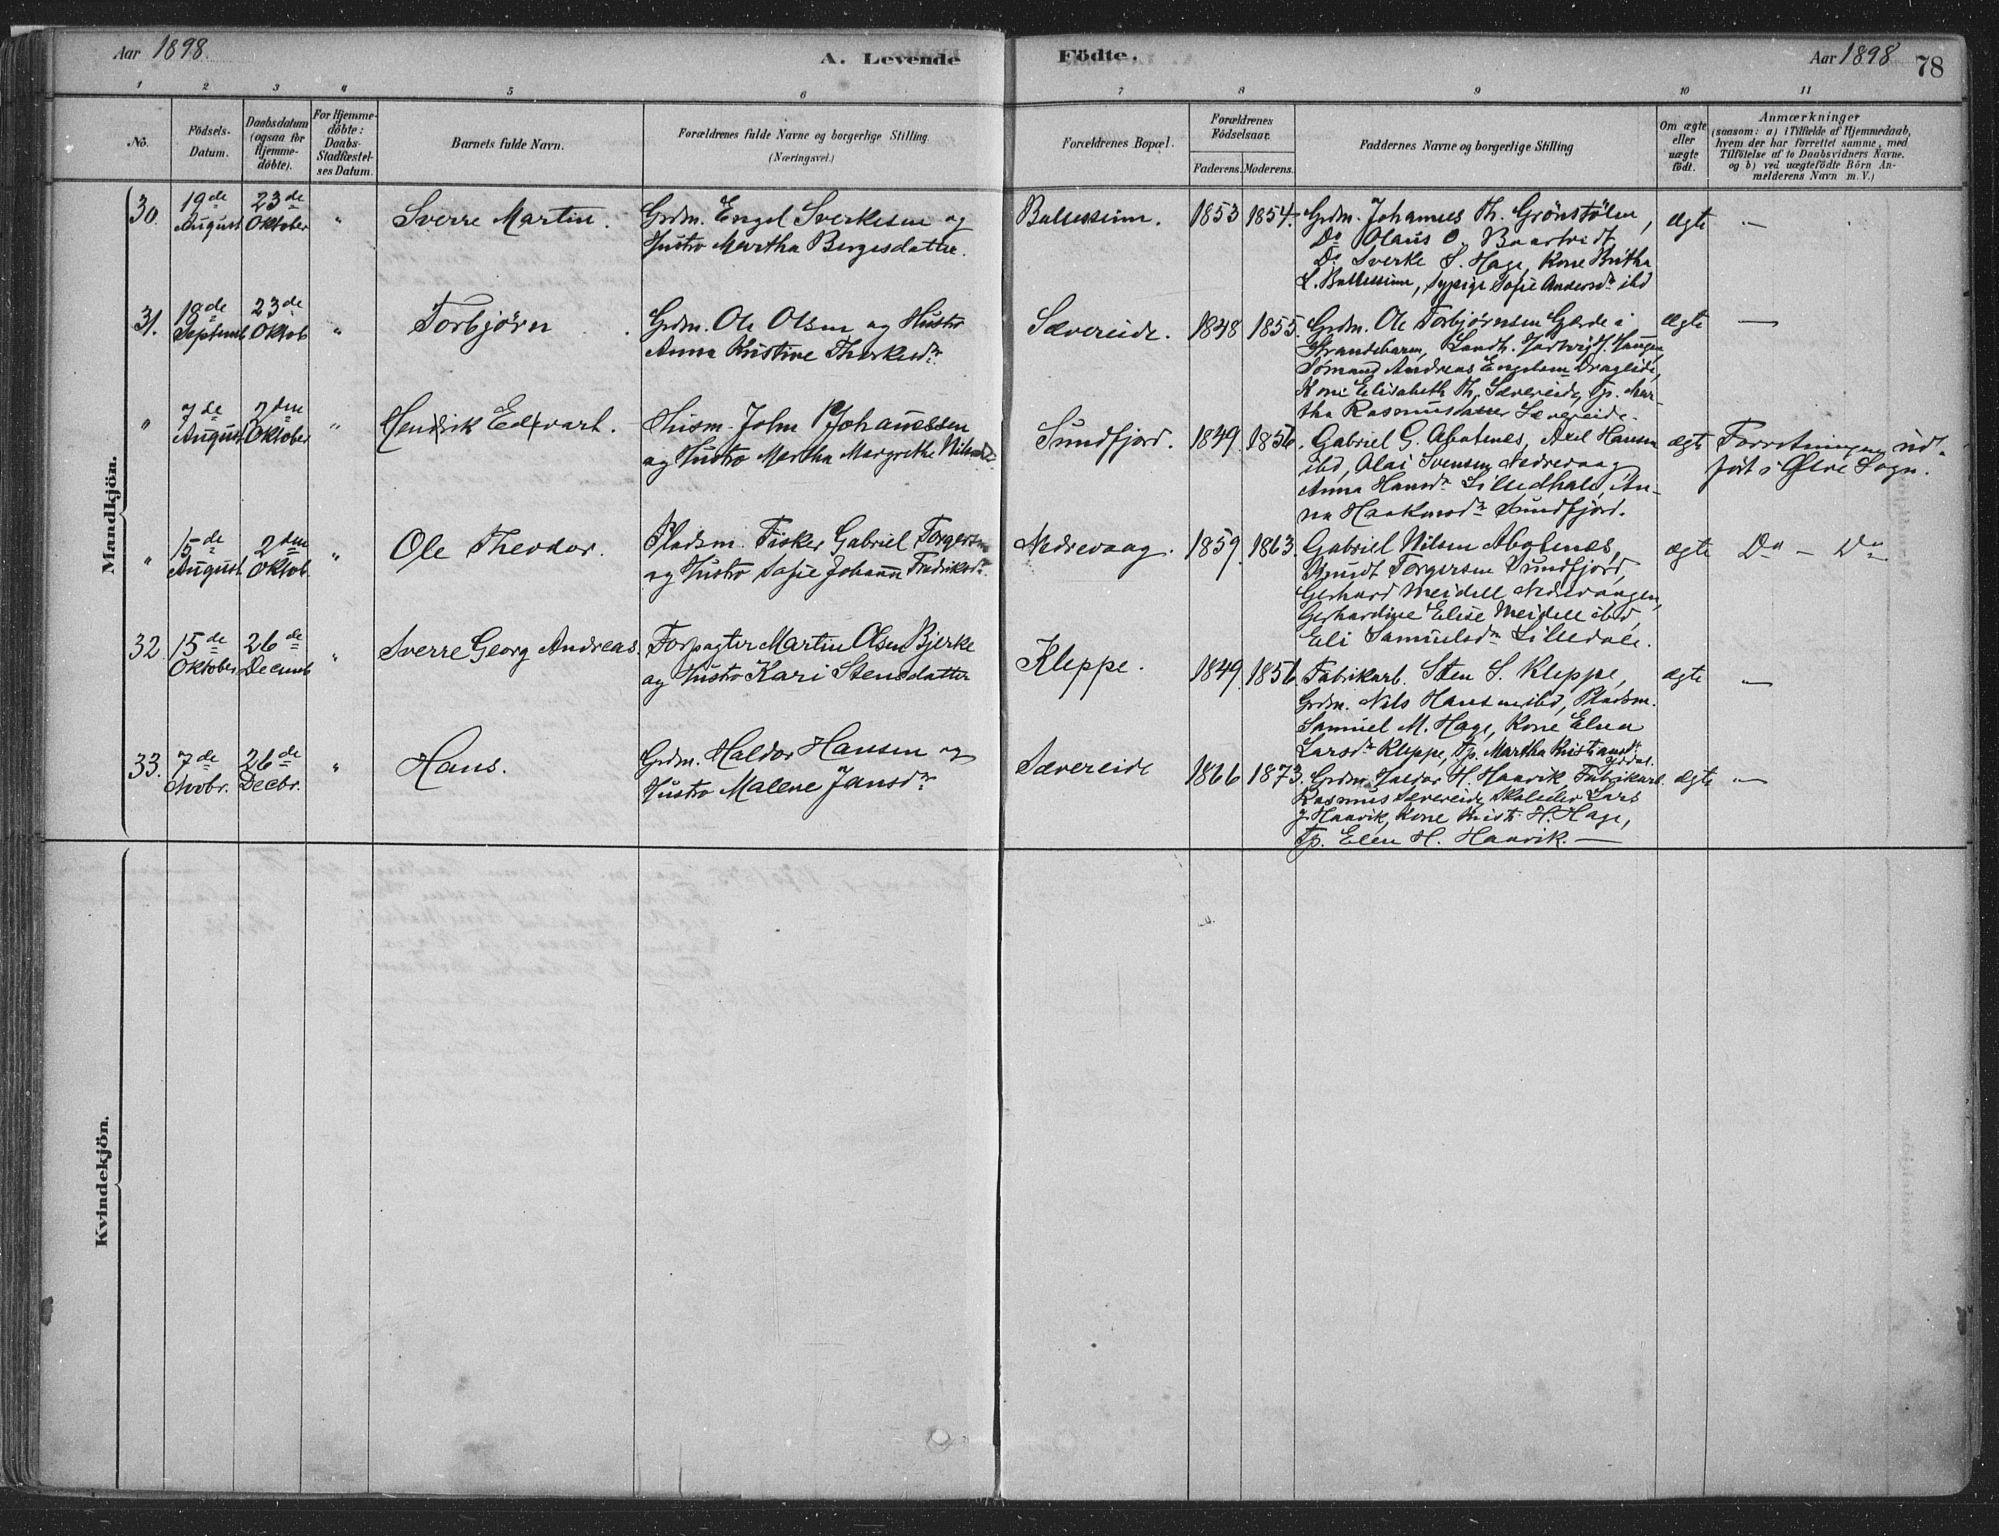 Aar 1898.
A. Levende
Födte.
Aar 1898
78
1
2
3
4
5
6
7
8
9
10
11
No.
Födsels-
Datum.
Daabsdatum
(ogsaa for
Hjemme-
döbte).
For Hjemme-
döbte:
Daabs-
Stadfæstel-
ses Datum.
Barnets fulde Navn.
Forældrenes fulde Navne og borgerlige Stilling.
(Næringsvei.)
Forældrenes Bopæl.
Forældrenes
Födselsaar.
Faderens.
Moderens.
Faddernes Navne og borgerlige Stilling
Om ægte
eller
uægte
födt.
Anmærkninger
(saasom: a) i Tilfælde af Hjemmedaab,
hvem der har forrettet samme, med
Tilföielse af to Daabsvidners Navne.
og b) ved uægtefödte Börn An-
melderens Navn m. V.)
Mandkjön.
30.
19de
August
23de
Oktober
"
Sverre Martin.
Grdm. Engel Sverkesen og
Hustro Martha Børgesdatter.
Ballessum.
1853
1854.
Grdm. Johannes Th. Grönstølen,
Do Olaus O.
Do Sverke S. Hage, Kone Britha
L. Ballessum, Sypige Sofie Andersdr ibd
ægte
—
31.
18de
Septemb
23de
Oktob
"
Torbjørn
Grdm. Ole Olsen og Hustro
Anna Kristine Thorkesdr
Sævereide.
1848
1855.
Grdm. Ole Torbjørnsen Gjerde i
Strandebarm, Landh.
Sømand Andreas Engelsen Drageide,
Kone Elisabeth Th. Sævereide, Tp. Mar-
tha Rasmusdatter Sævereide.
ægte
—
"
7de
August
2den
Oktober
"
Hendrik Edvart.
Husm. John Johanessen
og Hustro Martha Margrethe Nilsd.
Sundfjord.
1849.
1856.
Gabriel G. Abotnes, Axel Hansen
ibd, Olai Svensen Nedrevaag
Anna Hansdr Lilledhale, An-
na Haakonsdr Sundfjord.
ægte
Forretningen ud-
ført i Ølve Sogn.
"
15de
August
2den
Oktob.
"
Ole Theodor.
Pladsm. Fisker Gabriel Torgersen
og Hustro Sofie Johanne Fredriksdr
Nedrevaag.
1859.
1863.
Gabriel Nilsen Abotenæs,
Knudt Torgersen Sundfjord,
Gerhard Meidell Nedrevaagen,
Gerhardine Elise Meidell ibd,
Eli Samuelsdr Lilledale.
ægte
Do — Do
32
15de
Oktober
26de
Decemb
"
Sverre Georg Andreas.
Forpagter Martin Olsen Bjerke
og Hustro Kari Stensdatter
Kleppe.
1849.
1856.
Fabrikarb. Sten S. Kleppe,
Grdm. Nils Hansen ibd, Pladsm.
Samuel M. Hage, Kone Elna
Larsdr Kleppe, Tp. Martha Kristiansdr
Yddal.
ægte
—
33.
7de
Novbr.
26de
Decbr.
"
Hans.
Grdm. Haldor Hansen og
Hustro Malene Jansdr
Sævereide
1866
1873.
Grdm. Haldor H. Haavik, Fabrikarb.
Rasmus Sævereide, Skoleelev Lars
J. Haavik, Kone Krist. H. Hage,
Tp. Elen H. Haavik. —
ægte
—
Kvindekjön.